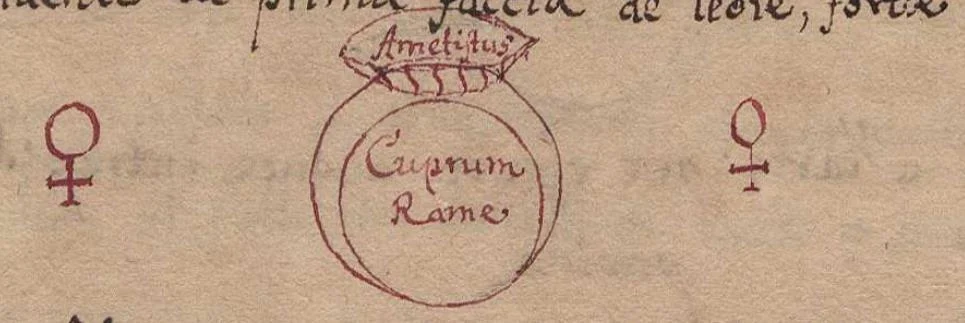 de prima faccia de leone, forte
Ametistus
♀ Cuprum ♀
Rame